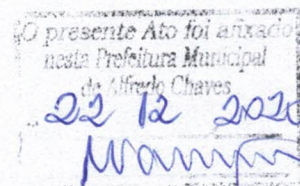 O presente Ato foi afixado
nesta Prefeitura Municipal
de Alfredo Chaves
22 12 2020